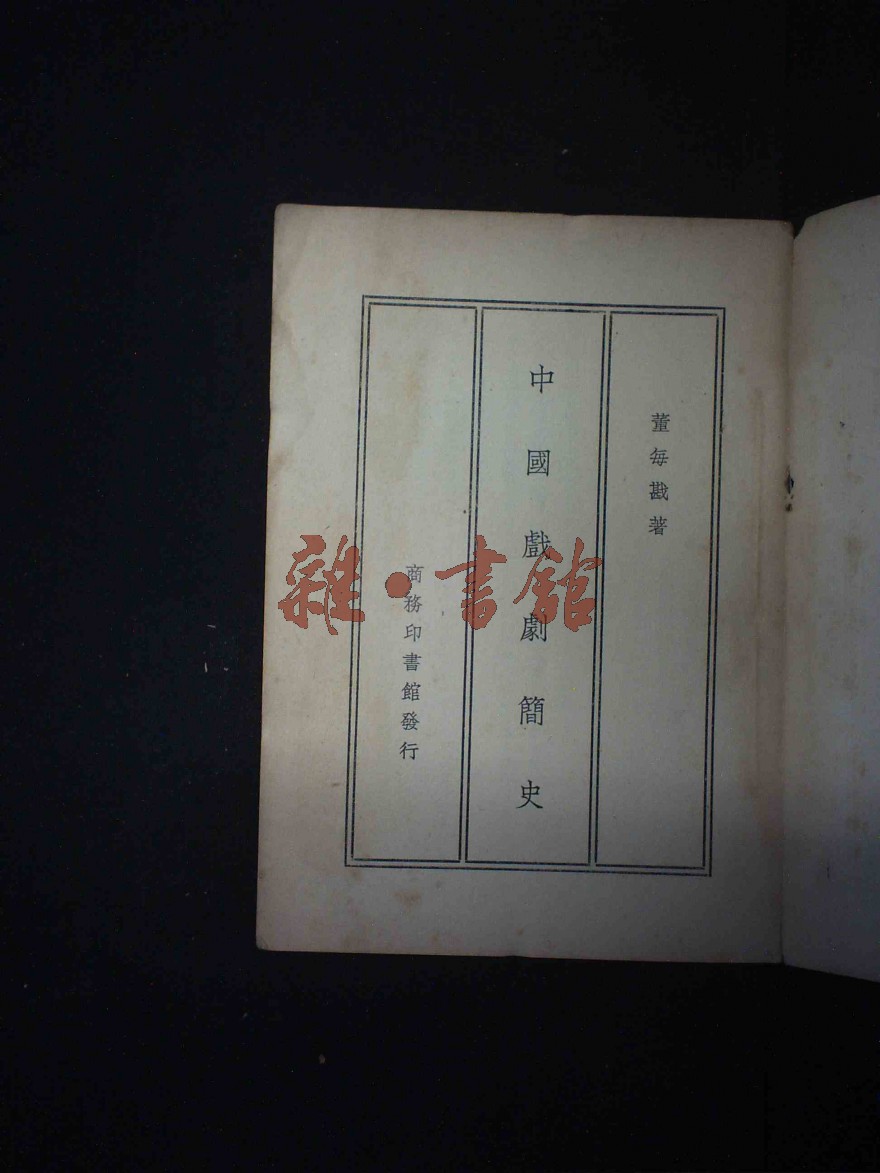 董每戡著
中國戲劇簡史
商務印書館發行
雜·書館